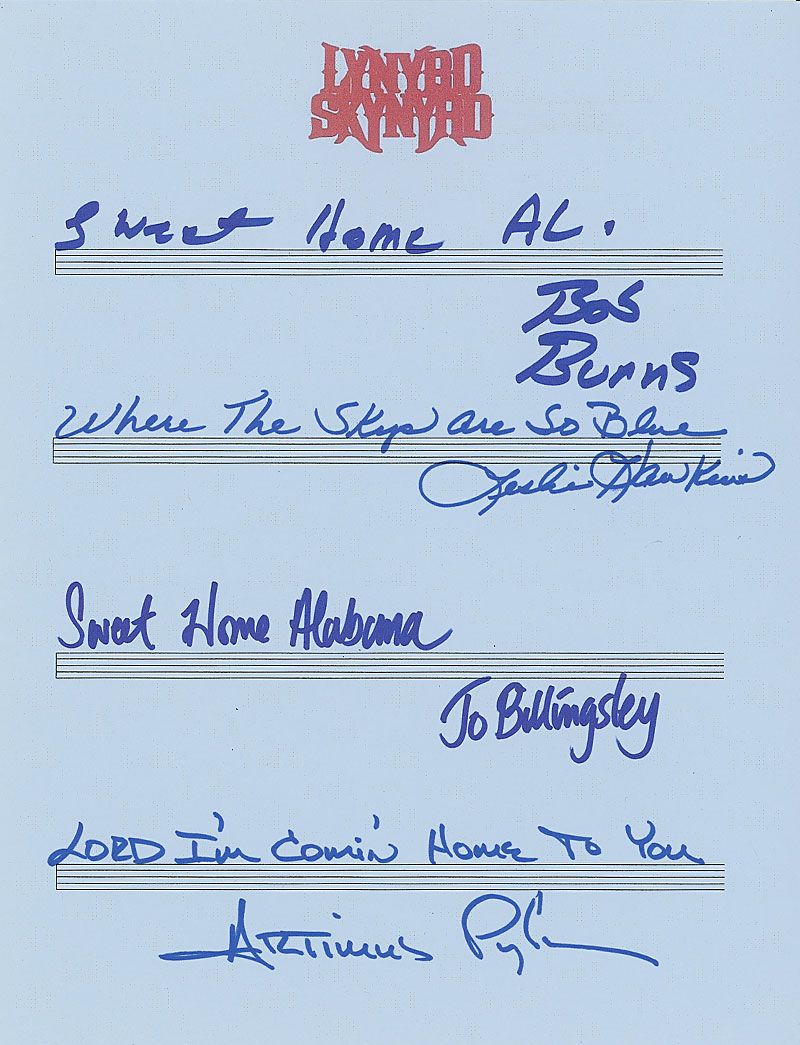 LYNYRD
SKYNYRD
Sweet Home AL.
Bob
Burns
Where The Skys are So Blue
Leslie Hawkins
Sweet Home Alabama
Jo Billingsley
LORD I'm Comin' Home To You
Artimus Pyle